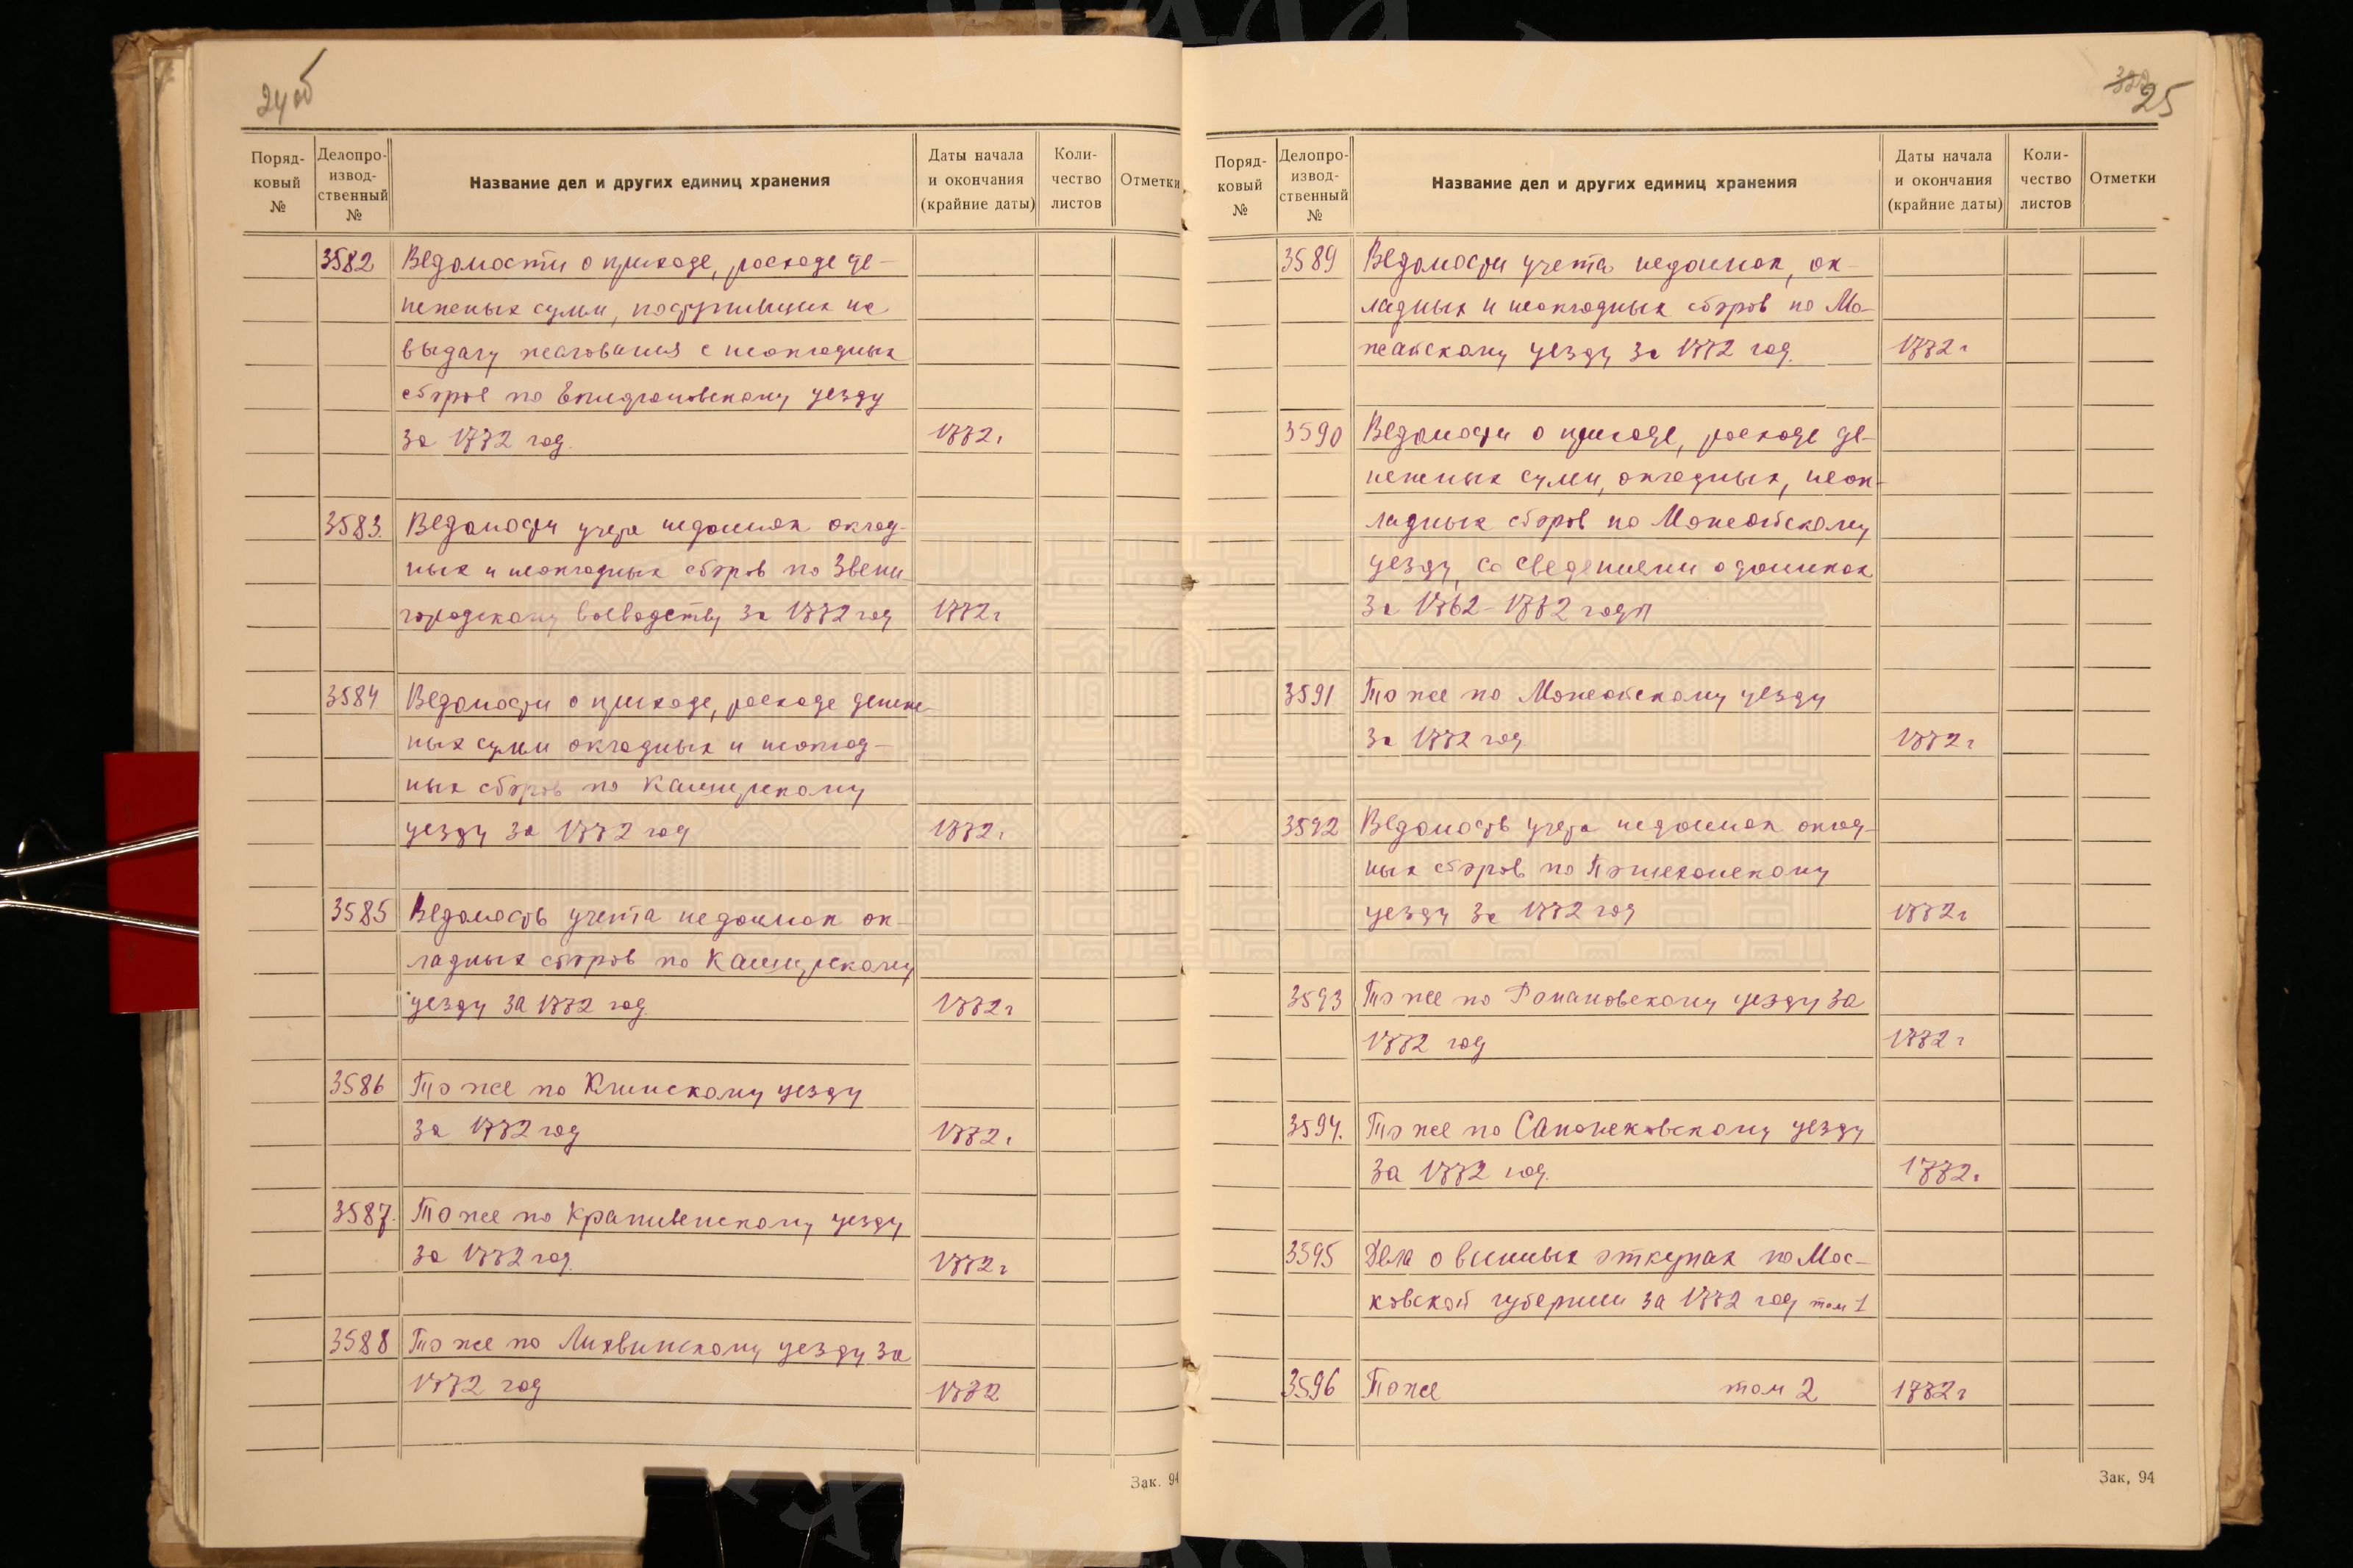 24об
Поряд-
ковый
№
Делопро-
извод-
ственный
№
Название дел и других единиц хранения
Даты начала
и окончания
(крайние даты)
Коли-
чество
листов
Отметки
3582 Ведомости о приходе, расходе де-
нежных сумм, поступивших на
выдачу жалования с неокладных
сборов по Епифановскому уезду
за 1772 год. 1772г
3583. Ведомости учета недоимок оклад-
ных и неокладных сборов по Звени
городскому воеводству за 1772 год 1772г
3584. Ведомости о приходе, расходе денеж-
ных сумм окладных и неоклад-
ных сборов по Каширскому
уезду за 1772 год 1772г
3585 Ведомость учета недоимок ок-
ладных сборов по Каширскому
уезду за 1772 год. 1772г
3586 То же по Клинскому уезду
за 1772 год 1772г
3587. То же по Крапивенскому уезду
за 1772 год. 1772г
3588 То же по Лихвинскому уезду за
1772 год 1772
Зак. 94
25
Поряд-
ковый
№
Делопро-
извод-
ственный
№
Название дел и других единиц хранения
Даты начала
и окончания
(крайние даты)
Коли-
чество
листов
Отметки
3589 Ведомости учета недоимок, ок-
ладных и неокладных сборов по Мо-
жайскому уезду за 1772 год. 1772г
3590 Ведомости о приходе, расходе де-
нежных сумм, окладных, неок-
ладных сборов по Можайскому
уезду, со сведениями о доимках
за 1762-1772 годы
3591 То же по Можайскому уезду
за 1772 год 1772г
3592 Ведомость учета недоимок оклад-
ных сборов по Пошехонскому
уезду за 1772 год 1772г
3593 То же по Романовскому уезду за
1772 год 1772г
3594. То же по Сапожковскому уезду
за 1772 год. 1772г
3595 Дела о винных откупах по Мос-
ковской губернии за 1772 год том 1
3596 То же том 2 1772г
Зак. 94